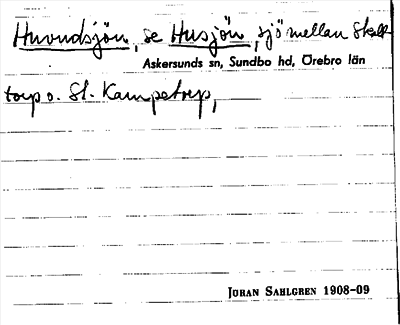 Huvudsjön, se Husjön, sjö mellan Skalk-
Askersunds sn, Sundbo hd, Örebro län
torp o. St. Kampetorp,
JORAN SAHLGREN 1908-09